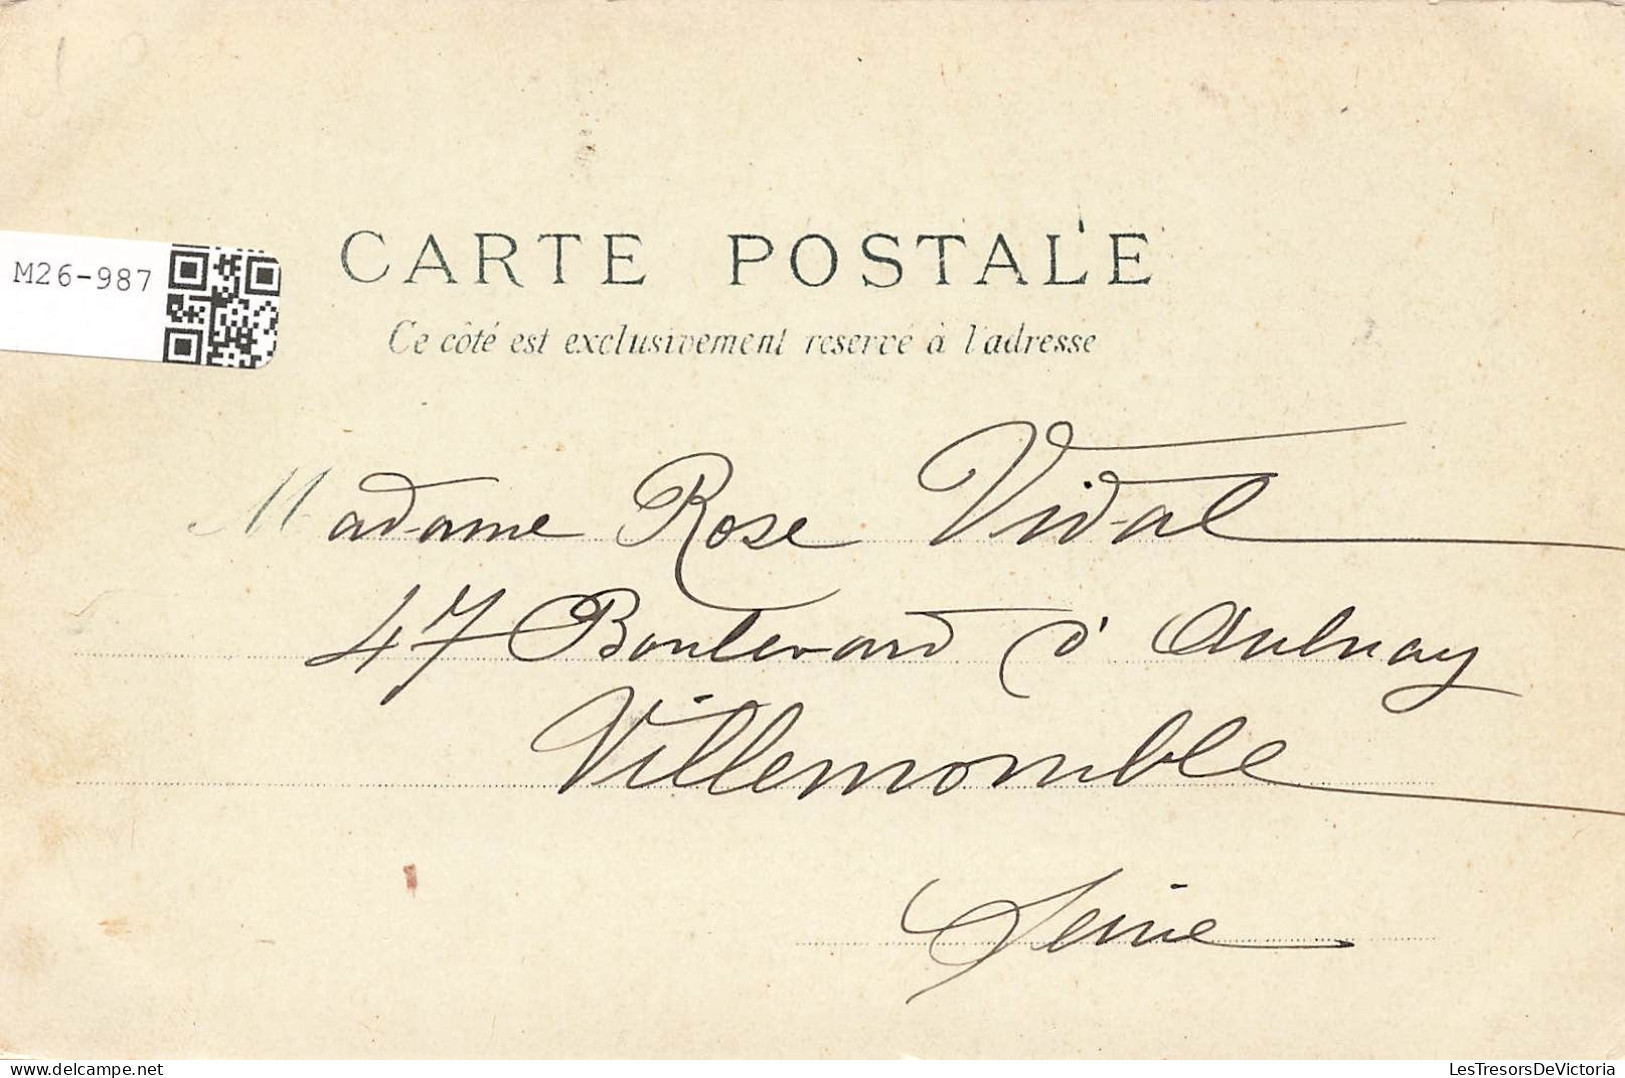 CARTE POSTALE
M26-987
Ce côté est exclusivement reservé à l'adresse
Madame Rose Vidal
47 Boulevard d'Aulnay
Villemomble
Seine
LesTresorsDeVictoria